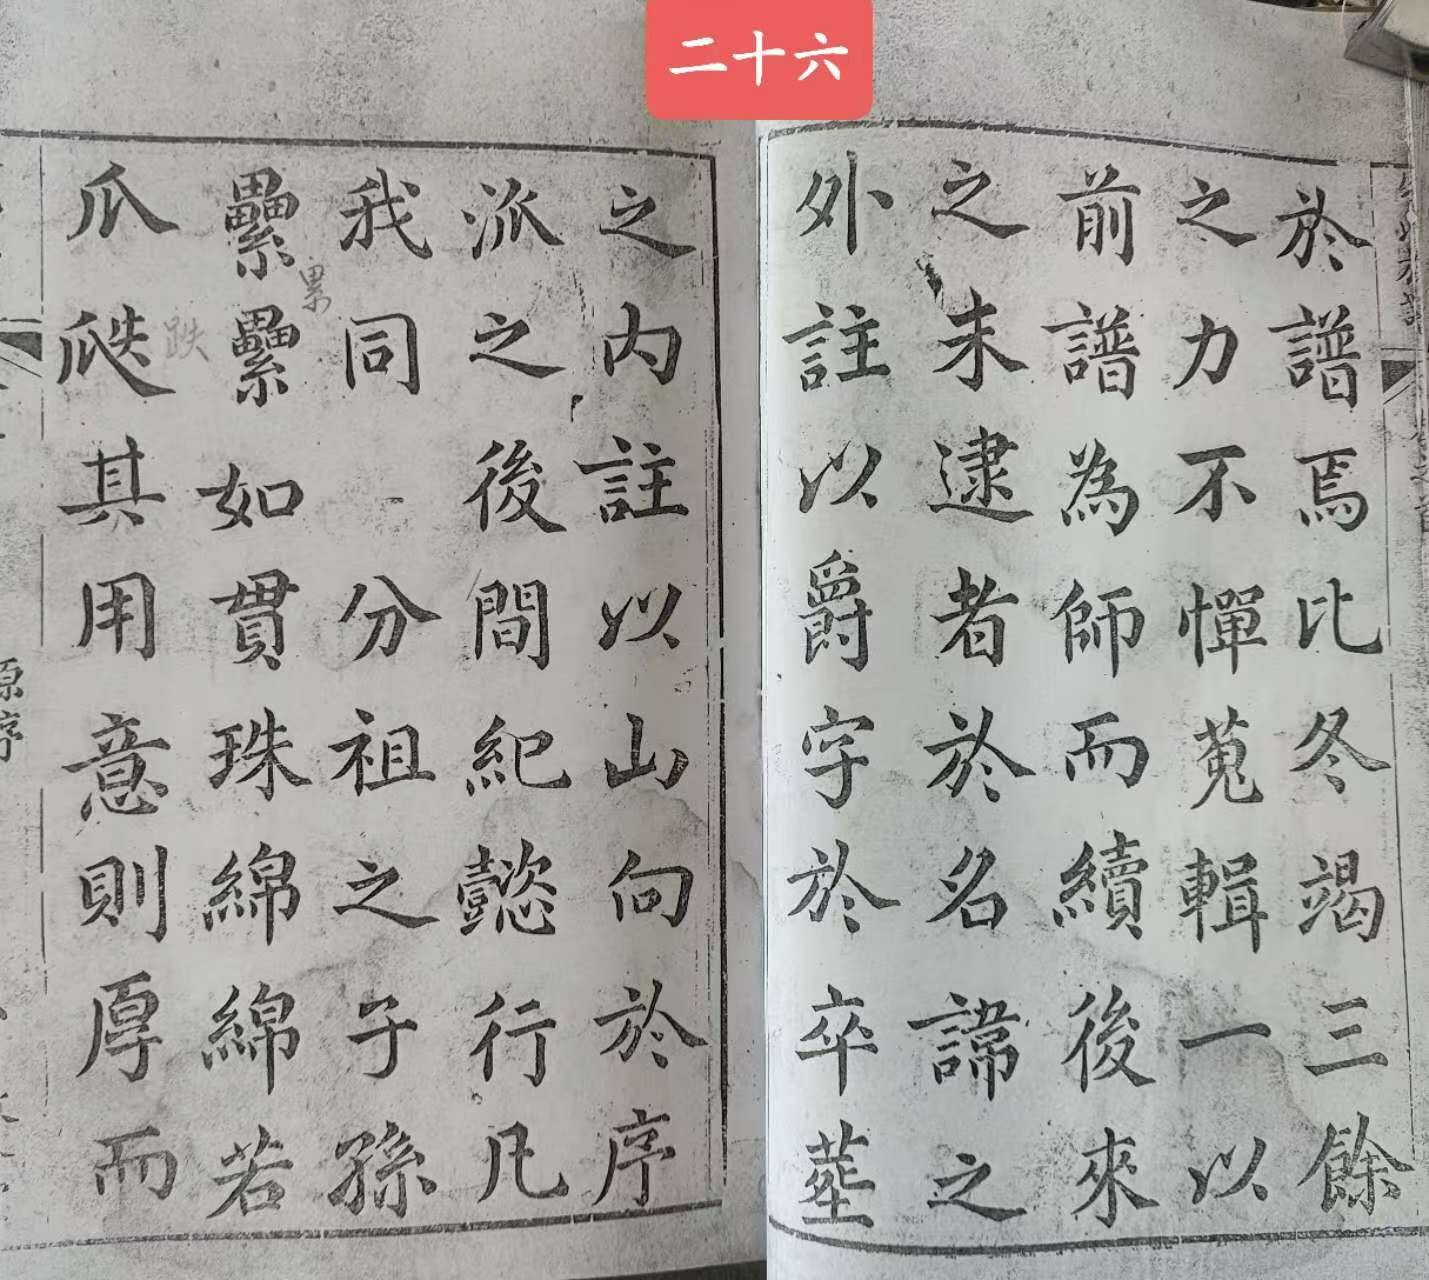 二十六
於譜焉比冬竭三餘
之力不憚蒐輯一以
前譜為師而續後來
之未逮者於名諱之
外註以爵字於卒塟
之內註以山向於序
派之後間紀懿行凡
我同分祖之子孫
纍纍如貫珠綿綿若
累
瓜瓞其用意則厚而
跌
源序